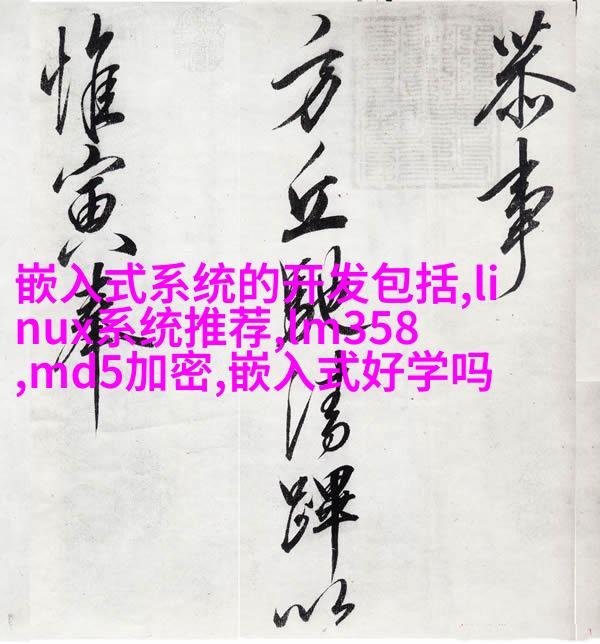 恭事
方丘清蹕以
惟寅奉
嵌入式系统的开发包括,li
nux系统推荐,lm358
,md5加密,嵌入式好学吗